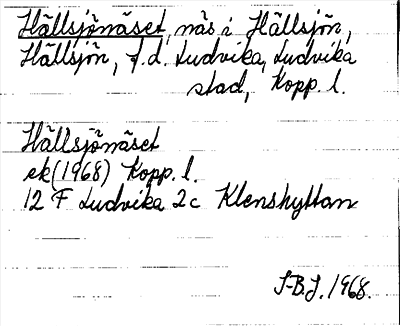 Hällsjönäset, näs i Hällsjön,
Hällsjön, f.d. Ludvika, Ludvika
stad, Kopp. l.
Hällsjönäset
ek (1968) Kopp. l.
12 F Ludvika 2c Klenshyttan
S-B.J. 1968.